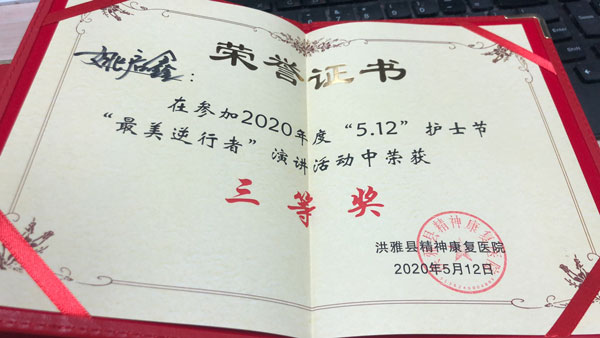 荣誉证书
姚启鑫：
在参加2020年度“5.12”护士节
“最美逆行者”演讲活动中荣获
三等奖
洪雅县精神康复医院
2020年5月12日
洪雅县精神康复医院